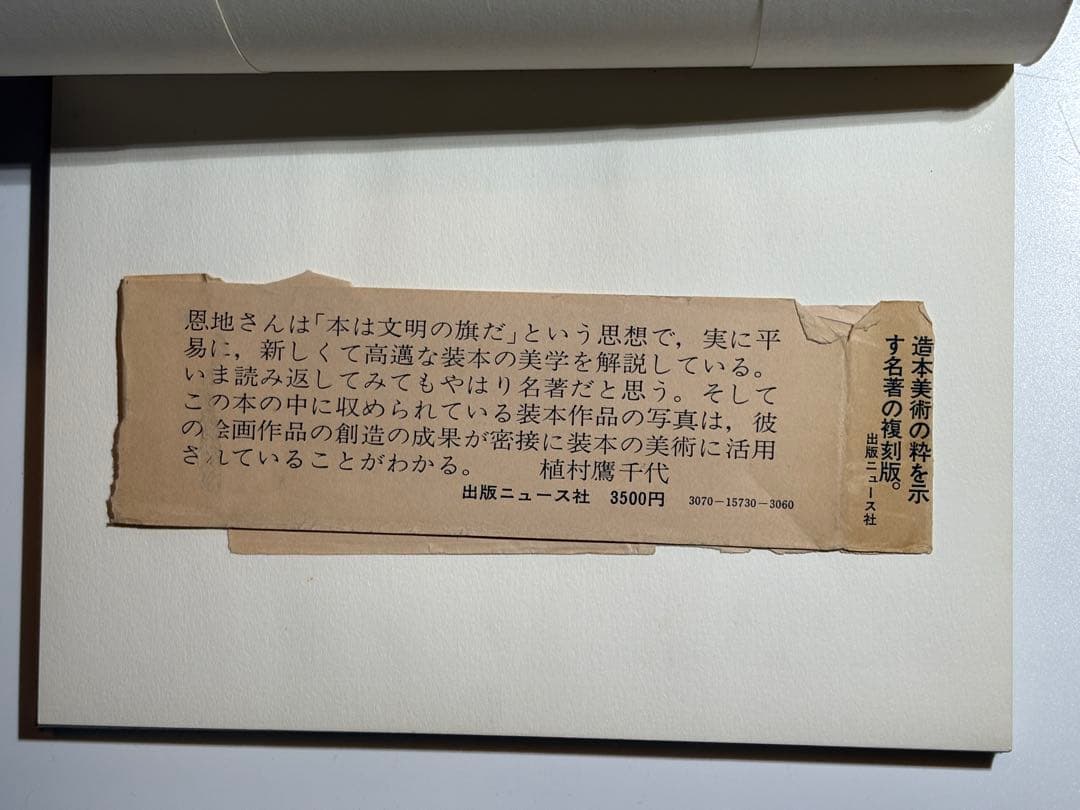 恩地さんは「本は文明の旗だ」という思想で，実に平
易に，新しくて高邁な装本の美学を解説している。
いま読み返してみてもやはり名著だと思う。そして
この本の中に収められている装本作品の写真は，彼
の絵画作品の創造の成果が密接に装本の美術に活用
されていることがわかる。 植村鷹千代
出版ニュース社 3500円 3070-15730-3060
造本美術の粋を示
す名著の複刻版。
出版ニュース社